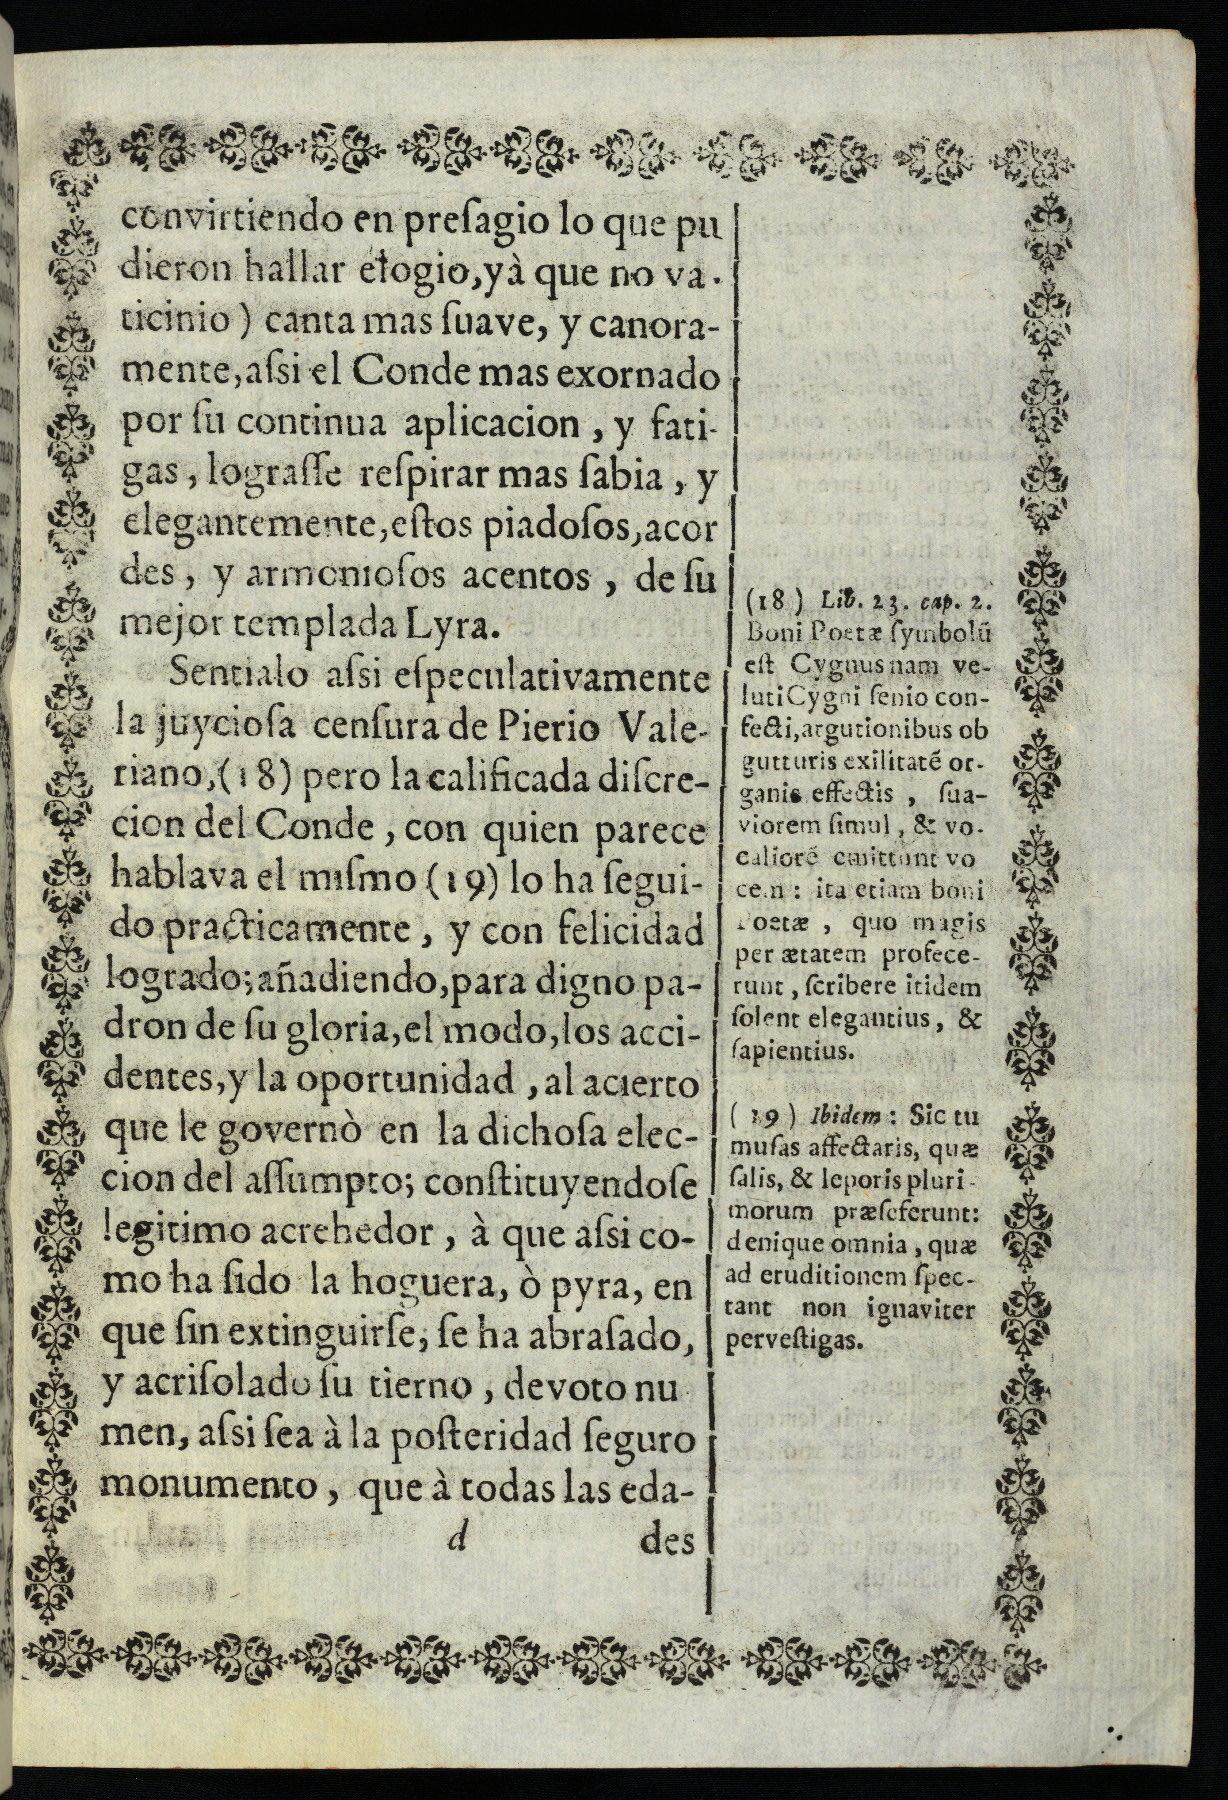 convirtiendo en preſagio lo que pu
dieron hallar elogio, yà que no va-
ticinio) canta mas ſuave, y canora-
mente, aſsi el Conde mas exornado
por ſu continua aplicacion, y fati-
gas, lograſſe reſpirar mas ſabia, y
elegantemente, eſtos piadoſos, acor
des, y armonioſos acentos, de ſu
mejor templada Lyra.
Sentialo aſsi eſpeculativamente
la juycioſa cenſura de Pierio Vale-
riano, (18) pero la calificada diſcre-
cion del Conde, con quien parece
hablava el miſmo (19) lo ha ſegui-
do practicamente, y con felicidad
logrado; añadiendo, para digno pa-
dron de ſu gloria, el modo, los acci-
dentes, y la oportunidad, al acierto
que le governò en la dichoſa elec-
cion del aſſumpto; conſtituyendoſe
legitimo acrehedor, à que aſsi co-
mo ha ſido la hoguera, ò pyra, en
que ſin extinguirſe, ſe ha abraſado,
y acriſolado ſu tierno, devoto nu
men, aſsi ſea à la poſteridad ſeguro
monumento, que à todas las eda-
d des
(18) Lib. 23. cap. 2.
Boni Poetæ ſymbolũ
eſt Cygnus nam ve-
luti Cygni ſenio con-
fecti, argutionibus ob
gutturis exilitatẽ or-
ganis effectis, ſua-
viorem ſimul, & vo-
caliorẽ emittunt vo
cem: ita etiam boni
Poetæ, quo magis
per ætatem profece-
runt, ſcribere itidem
ſolent elegantius, &
ſapientius.
(19) Ibidem: Sic tu
muſas affectaris, quæ
ſalis, & leporis pluri-
morum præſeferunt:
denique omnia, quæ
ad eruditionem ſpec-
tant non ignaviter
perveſtigas.